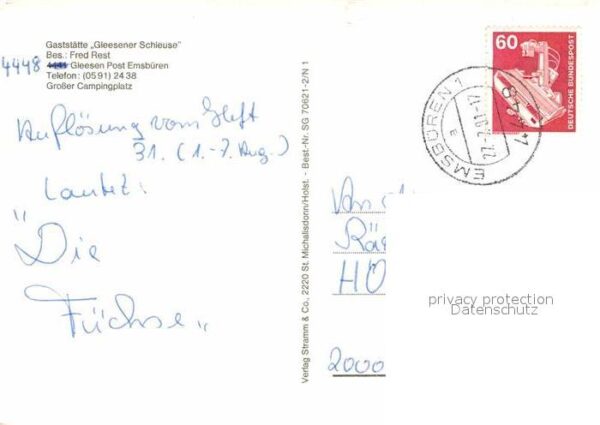 Gaststätte „Gleesener Schleuse"
Bes.: Fred Rest
4448 Gleesen Post Emsbüren
Telefon: (05 91) 24 38
Großer Campingplatz
Auflösung vom Heft
31. (1.-7. Aug.)
Lautet:
"Die
Füchse"
Verlag Stramm & Co., 2220 St. Michalisdonn/Holst. - Best.-Nr. SG 70621-2/N 1
60
DEUTSCHE BUNDESPOST
EMSBÜREN 1
An
Rä
HÖ
2000
privacy protection
Datenschutz